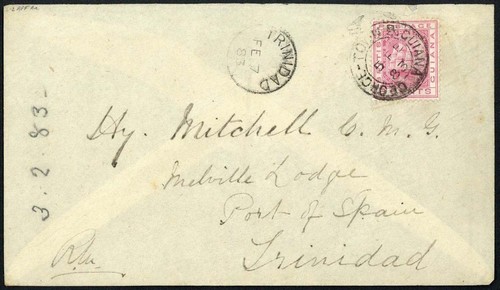 TRINIDAD
FE 7
83
GEORGE-TOWN B. GUIANA
GUIANA
3.2.83-
Hy. Mitchell C.M.G.
Melville Lodge
Port of Spain
Trinidad